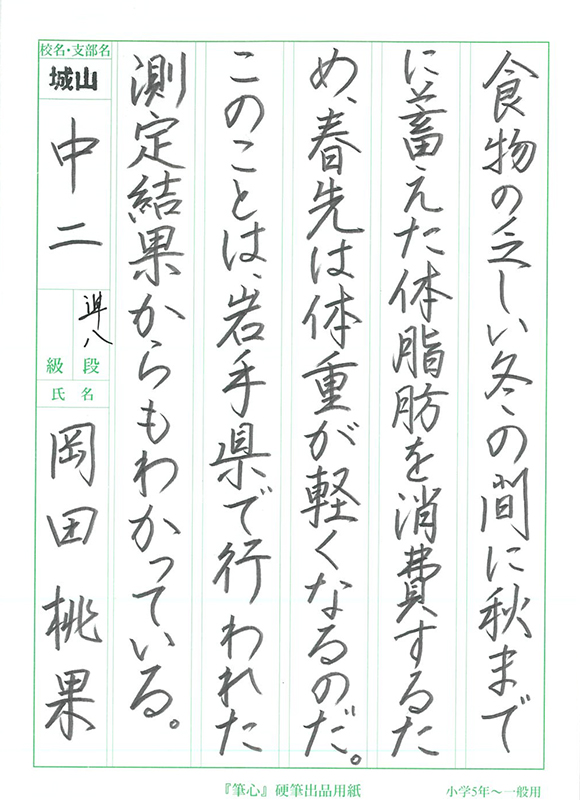 食物の乏しい冬の間に秋まで
に蓄えた体脂肪を消費するた
め、春先は体重が軽くなるのだ。
このことは、岩手県で行われた
測定結果からもわかっている。
校名・支部名
城山
中二
準八
段
級
氏名
岡田桃果
『筆心』硬筆出品用紙
小学5年～一般用